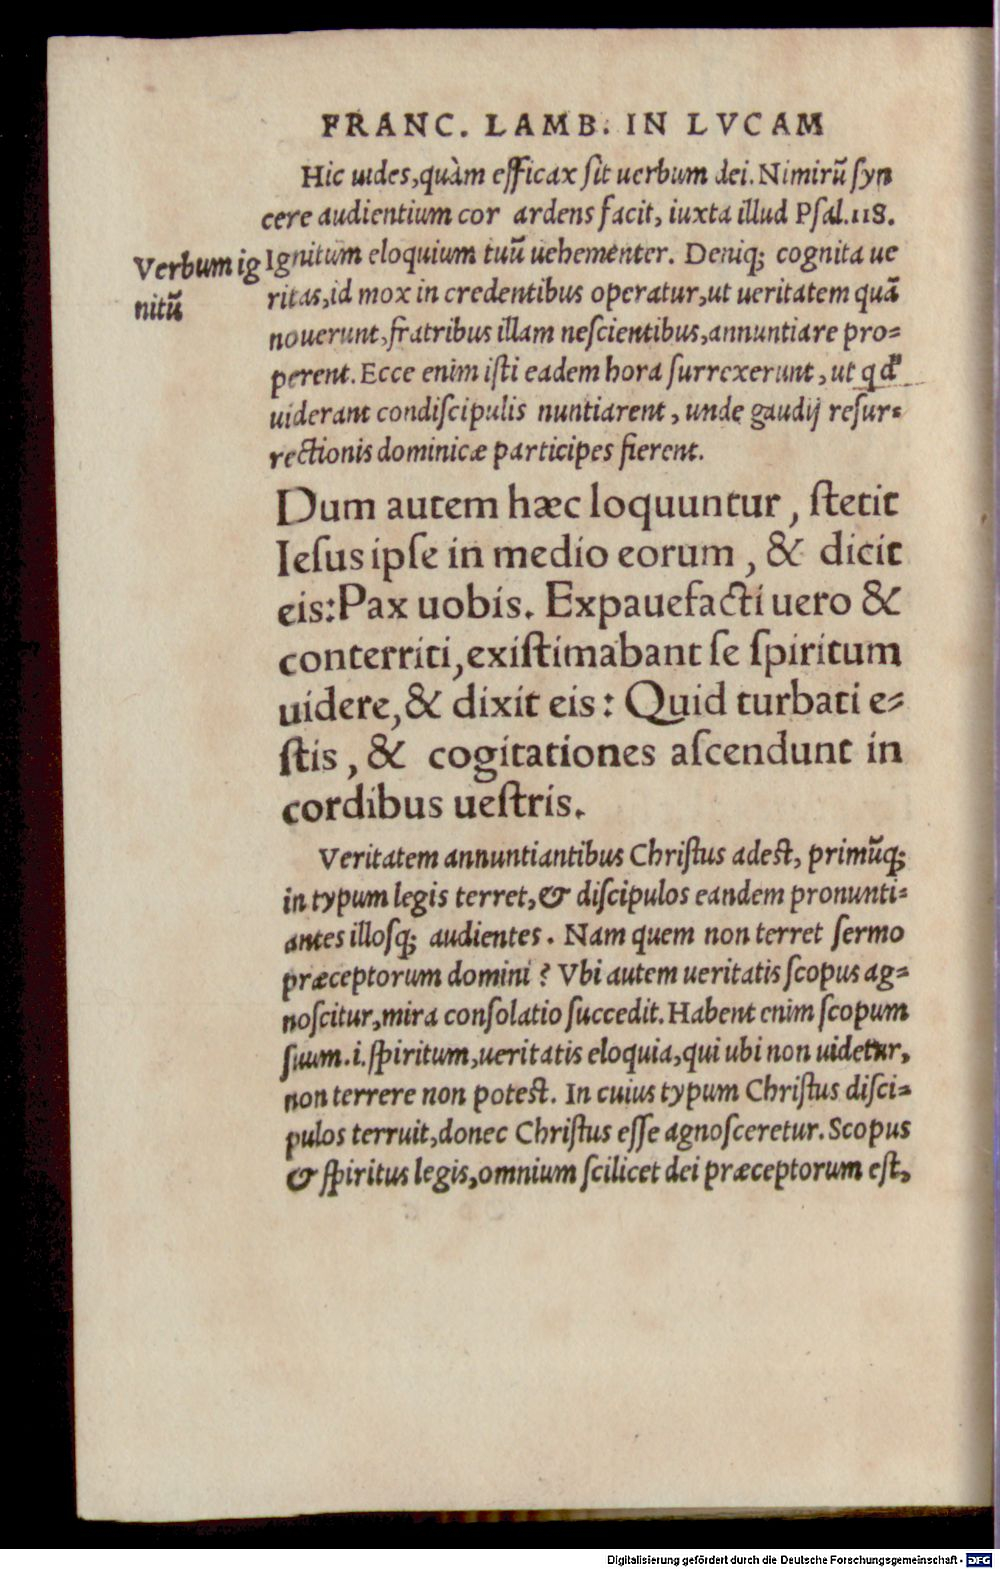 FRANC. LAMB. IN LVCAM
Hic uides,quàm efficax ſit uerbum dei. Nimirũ ſyn
cere audientium cor ardens facit, iuxta illud Pſal.118.
Verbum ig
nitũ
Ignitum eloquium tuũ uehementer. Deniq; cognita ue
ritas,id mox in credentibus operatur,ut ueritatem quã
nouerunt,fratribus illam neſcientibus,annuntiare pro=
perent. Ecce enim iſti eadem hora ſurrexerunt, ut qd'
uiderant condiſcipulis nuntiarent, unde gaudij reſur=
rectionis dominicæ participes fierent.
Dum autem hæc loquuntur, ſtetit
Ieſus ipſe in medio eorum, & dicit
eis:Pax uobis. Expauefacti uero &
conterriti,exiſtimabant ſe ſpiritum
uidere,& dixit eis: Quid turbati e=
ſtis, & cogitationes aſcendunt in
cordibus ueſtris.
Veritatem annuntiantibus Chriſtus adeſt, primũq;
in typum legis terret,& diſcipulos eandem pronunti=
antes illoſq; audientes. Nam quem non terret ſermo
præceptorum domini? Vbi autem ueritatis ſcopus ag=
noſcitur,mira conſolatio ſuccedit. Habent enim ſcopum
ſuum.i.ſpiritum,ueritatis eloquia,qui ubi non uidetur,
non terrere non poteſt. In cuius typum Chriſtus diſci=
pulos terruit,donec Chriſtus eſſe agnoſceretur. Scopus
& ſpiritus legis,omnium ſcilicet dei præceptorum eſt,
Digitalisierung gefördert durch die Deutsche Forschungsgemeinschaft - DFG